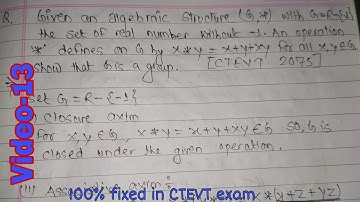 Q. Given an algebraic structure (G,*) with G=R-{-1}
the set of real number without -1. An operation
'*' defines on G by x*y = x+y+xy for all x,y∈G
show that G is a group. [CTEVT 2075]
Set G = R-{-1}
closure axim
For x,y∈G, x*y = x+y+xy∈G so, G is
closed under the given operation.
(ii) Associative axim:
x*(y+z+yz)
Video-13
100% fixed in CTEVT exam